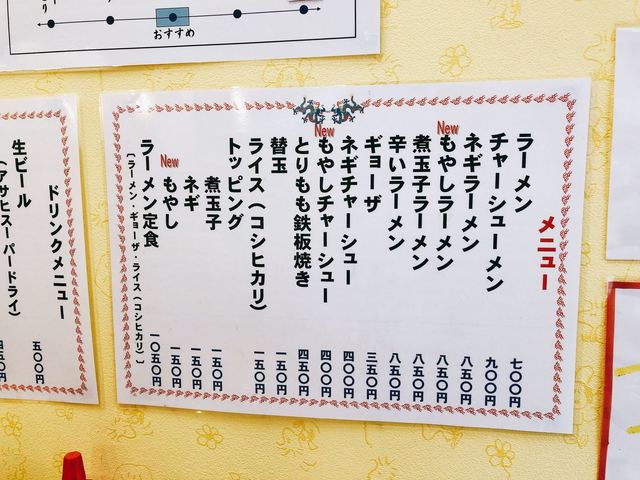 おすすめ
メニュー
ラーメン 七〇〇円
チャーシューメン 九〇〇円
ネギラーメン 八五〇円
New
もやしラーメン 八五〇円
煮玉子ラーメン 八五〇円
辛いラーメン 八五〇円
ギョーザ 三五〇円
ネギチャーシュー 四〇〇円
New
もやしチャーシュー 四〇〇円
とりもも鉄板焼き 四五〇円
替玉 一五〇円
ライス(コシヒカリ) 一五〇円
トッピング
煮玉子 一五〇円
ネギ 一五〇円
New
もやし 一五〇円
ラーメン定食 一〇五〇円
(ラーメン・ギョーザ・ライス(コシヒカリ))
ドリンクメニュー
生ビール 五〇〇円
(アサヒスーパードライ)